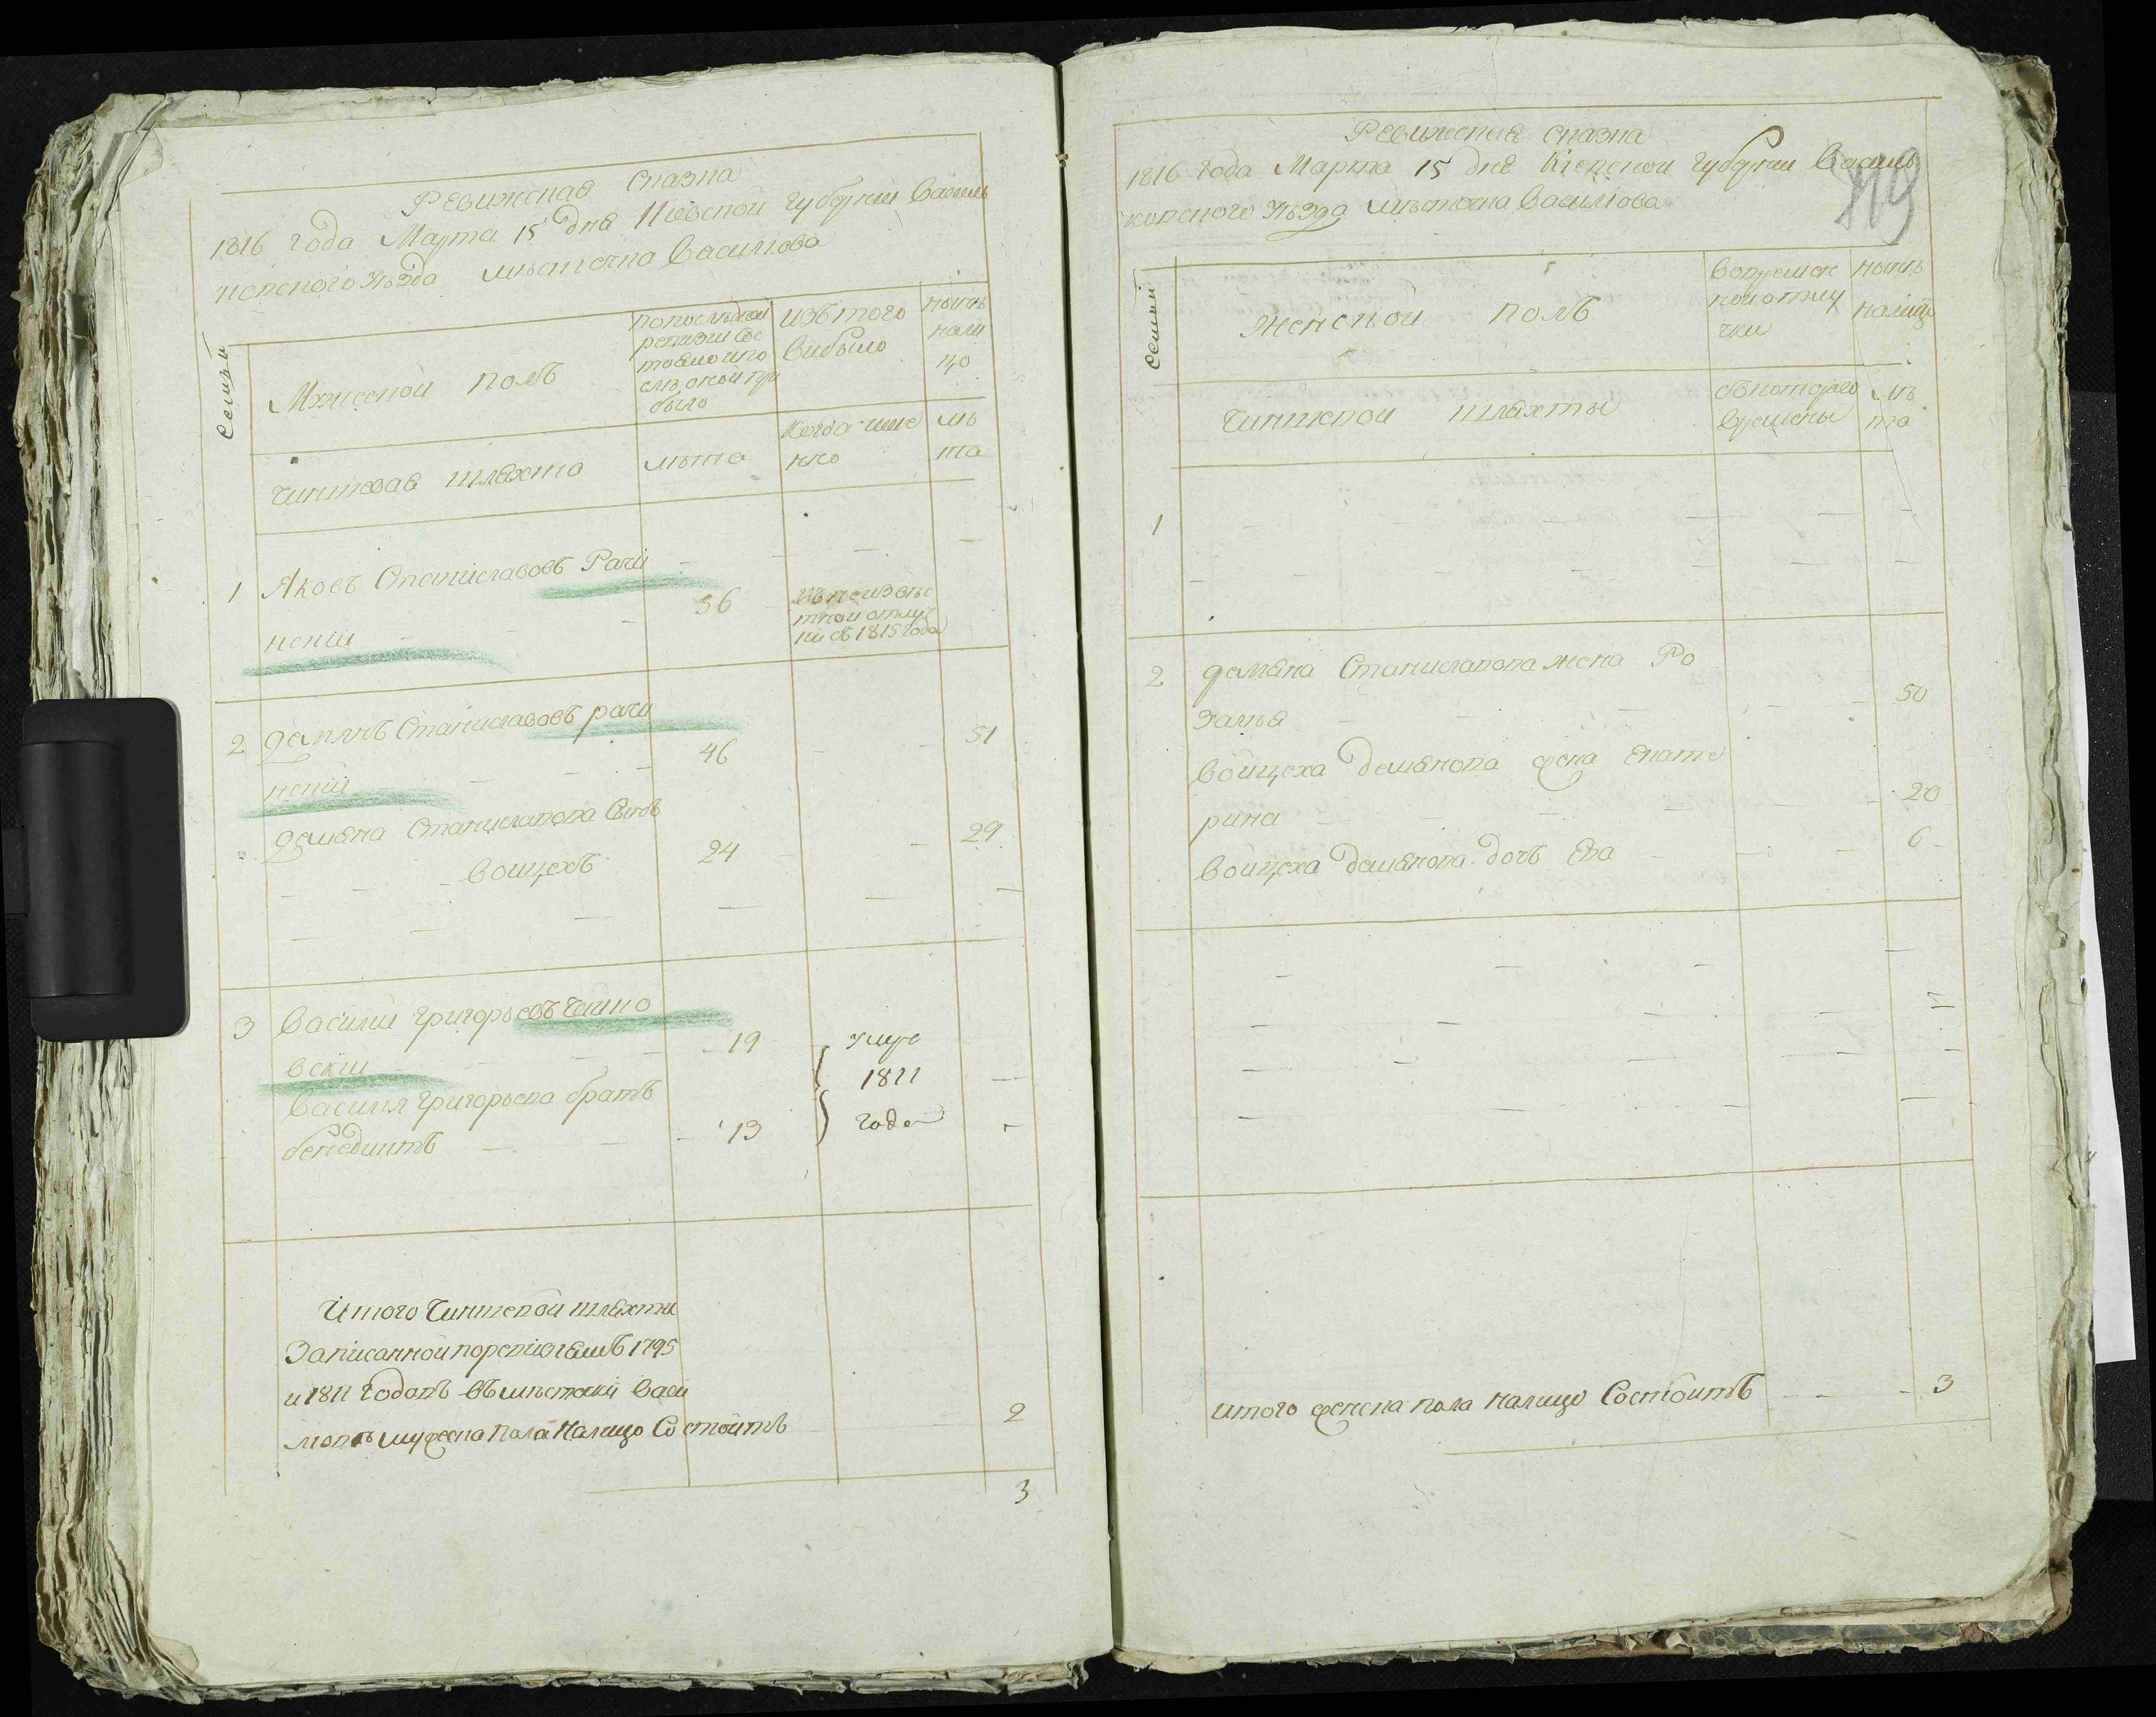 Ревижская Сказка
1816 года Марта 15 дня Киевской губернии Василь
ковского уѣзда мѣстечка Василкова
Семьи
Мужеской полъ
по последной
ревизии сос
тояло и по
слѣ оной при
было
изъ того
выбыло
нынѣ
нали
цо
Чиншовая шляхта
лѣта
когда имен
нно
лѣ
та
1 Яковъ Станиславовъ Рачи
нский
56
въ неизвѣс
тной отлуч
ки съ 1815 года
2 Демянъ Станиславовъ рачи
нский
46
51
Демяна Станиславова Сынъ
Войцехъ
24
29
3 Василий Григорьевъ
вский
19
Василя Григорьева братъ
бенедиктъ
13
умре
1811
года
Итого Чиншевой шляхты
Записанной по ревизиямъ 1795
и 1811 годовъ въ мѣстечки Васи
лковѣ мужеска пола налицо Состоитъ
2
3
Ревижская сказка
1816 года Марта 15 дня Киевской губернии Василь
ковского уѣзда мѣстечка Василкова
Семьи
Женской полъ
Во времен
ной отлу
чки
нынѣ
налицо
Чиншевой шляхты
съ которого
времены
лѣ
та
1
2 Демяна Станиславова жена Ро
залѣя
50
Войцеха Демянова жена Екате
рина
20
Войцеха Демянова дочь Ева
6
итого женска пола налицо Состоитъ
3